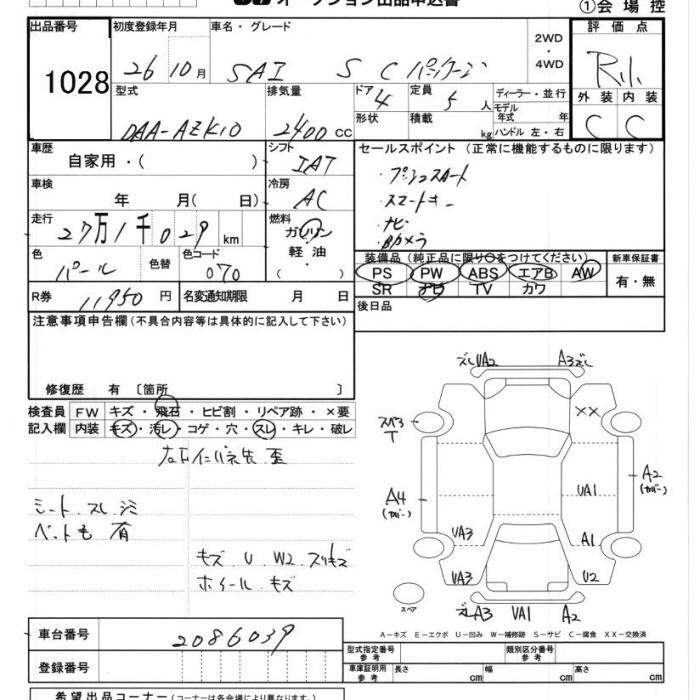 オークション出品申込書
①会場控
出品番号 初度登録年月 車名・グレード 評価点
1028 26 10月 SAI S Cパッケージ 2WD・4WD R小
外装 内装
C C
型式 排気量 ドア 定員 ディーラー・並行
DAA-AZK10 2400cc 4 5人 モデル年式 年
形状 積載 kg ハンドル 左・右
車歴 シフト セールスポイント (正常に機能するものに限ります)
自家用・( ) IAT ・プッシュスタート
・スマートキー
・ナビ
・Bカメラ
車検 冷房
年 月( 日) AC
走行 燃料
27万1千029km ガソリン・軽油・( )
色 色替 色コード
パール 070
装備品 (純正品に限り○をつけてください) 新車保証書
PS PW ABS エアB AW 有・無
SR ナビ TV カワ
R券 11950円 名変通知期限 月 日
後日品
注意事項申告欄 (不具合内容等は具体的に記入して下さい)
修復歴 有 〔箇所 〕
検査員記入欄 FW キズ・飛石・ヒビ割・リペア跡・×要
内装 キズ・汚レ・コゲ・穴・スレ・キレ・破レ
シート スレ
ペット毛 有
キズ U W2 スリキズ
ホイール キズ
ズレ UA2 A3 ズレ
××
T
A4
(カバー)
A2
(カバー)
UA1
UA3 A1
UA3 U2
スペア
ズレ A3 UA1 A2
A-キズ E-エクボ U-凹み W-補修跡 S-サビ C-腐食 XX-交換済
車台番号 2086039
登録番号
型式指定番号 参考 類別区分番号 参考
車庫証明用 参考 長さ cm 幅 cm 高さ cm
希望出品コーナー (コーナー名は各会場により異なります)